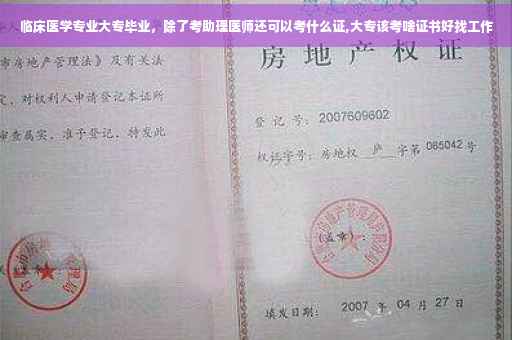 临床医学专业大专毕业，除了考助理医师还可以考什么证,大专该考啥证书好找工作
市房地产管理法》及有关法
定，对权利人申请登记本证所
审查属实，准予登记，特发此
房 地 产 权
登 记 号：2007609602
权证字号：房地权 庐 字第 065042 号
(盖章)：
填发日期： 2007 年 04 月 27 日